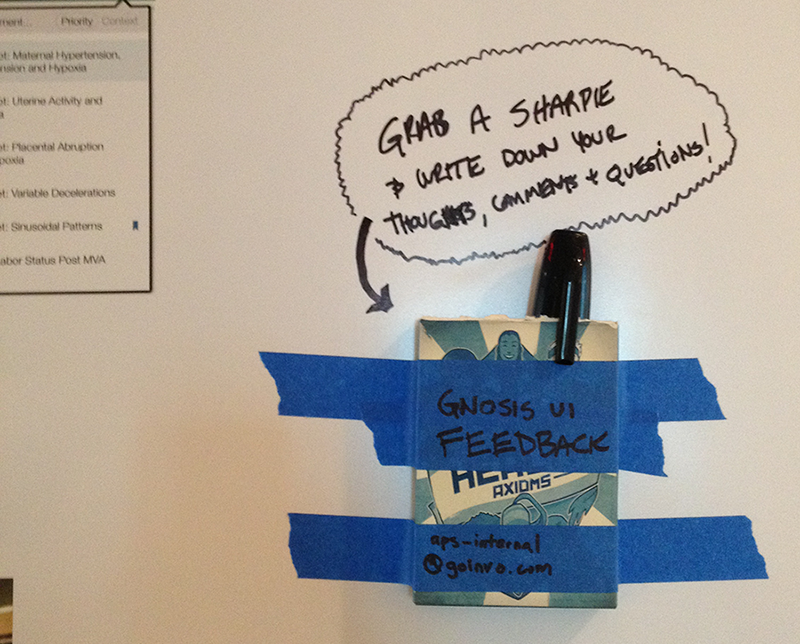 Priority Context
et: Maternal Hypertension,
nsion and Hypoxia
et: Uterine Activity and
a
et: Placental Abruption
poxia
et: Variable Decelerations
et: Sinusoidal Patterns
abor Status Post MVA
GRAB A SHARPIE
& WRITE DOWN YOUR
THOUGHTS, COMMENTS + QUESTIONS!
GNOSIS UI
FEEDBACK
AXIOMS
aps-internal
@goinvo.com